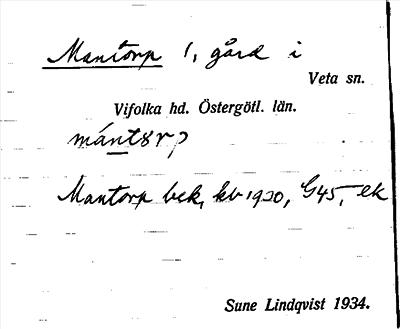 Mantorp 1, gård i
Veta sn.
Vifolka hd. Östergötl. län.
mántør,
Mantorp bek, kb 1920, G45, ek
Sune Lindqvist 1934.